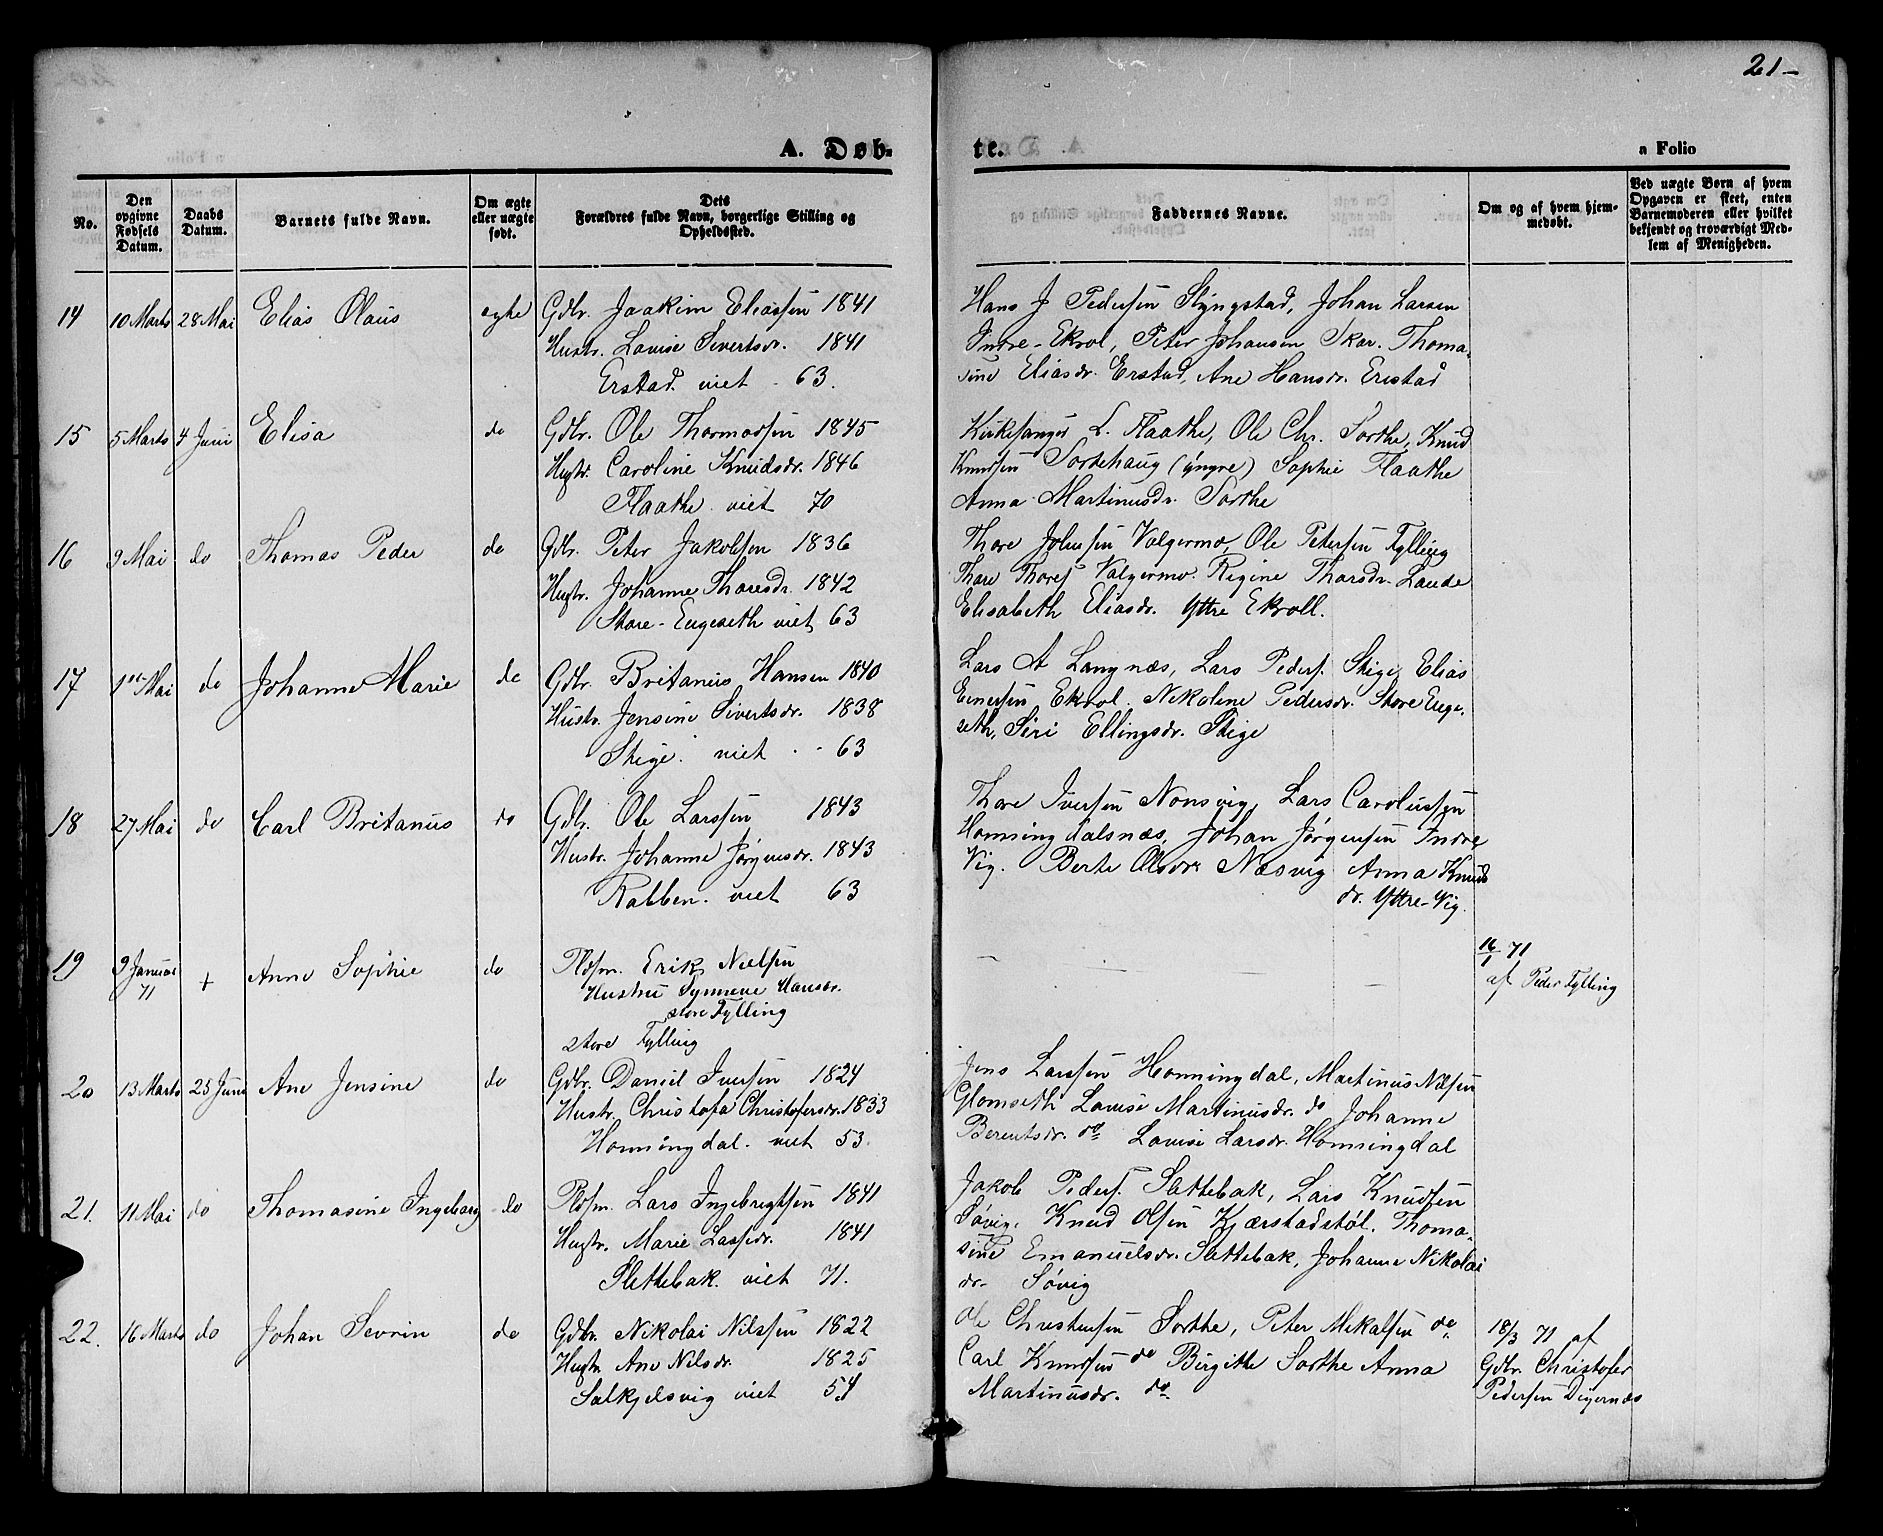 21-
A. Døb-
te.
a Folio
No.
Den opgivne Fødsels Datum.
Daabs Datum.
Barnets fulde Navn.
Om ægte eller uægte født.
Dets Forældres fulde Navn, borgerlige Stilling og Opholdssted.
Faddernes Navne.
Om og af hvem hjemmedøbt.
Ved uægte Børn af hvem Opgaven er skeet, enten Barnemoderen eller hvilket bekjendt og troværdigt Medlem af Menigheden.
14 10 Marts 28 Mai Elias Olaus ægte Gdbr. Joakim Eliassen 1841
Hustr. Lovise Sivertsdr. 1841
Erstad viet - 63.
Hans J Pedersen Slyngstad, Johan Larsen
Indre-Ekrol, Peter Johansen Skar. Thoma-
sine Eliasdr. Erstad, Ane Hansdr. Erstad
15 5 Marts 4 Juni Elisa do Gdbr. Ole Thormodsen 1845
Hustr. Caroline Knudsdr. 1846
Flaathe viet 70
Kirkesanger L. Flaathe, Ole Chr. Sorthe, Knud
Knudsen Sortehaug (yngre) Sophie Flaathe
Anna Martinusdr. Sorthe
16 9 Mai do Thomas Peder do Gdbr. Peter Jakobsen 1836
Hustr. Johanne Tharesdr. 1842
Store-Engeseth viet 63
Thore Johnsen Valgermo, Ole Petersen Fylling
Thore Thores. Valgermo. Regine Thorsdr. Lande
Elisabeth Eliasdr. Yttre Ekroll.
17 1ste Mai do Johanne Marie do Gdbr. Britanus Hansen 1840
Hustr. Jensine Sivertsdr. 1838
Skige. viet - - 63
Lars A Langnæs, Lars Peders. Skige, Elias
Einersen Ekrol. Nikoline Pedersdr. Store Enge-
seth, Siri Ellingsdr. Skige
18 27 Mai do Carl Britanus do Gdbr. Ole Larssen 1843
Hustr. Johanne Jørgensdr. 1843
Rabben. viet 63
Thore Iversen Nonsvig, Lars Carolussen
Honningdalsnæs, Johan Jørgensen Indre
Vig. Berte Olsdr. Næsvig Anna Knuds
dr. Yttre-Vig.
19 9 Januar 71 + Anne Sophie do Pldsm. Erik Nielsen
Hustru Synneve Hansdr.
store Fylling
store Fylling
16/1 71
af Peder Fylling
20 13 Marts 25 Juni Ane Jensine do Gdbr. Daniel Iversen 1824
Hustr. Christofa Christofersdr. 1833
Honningdal. viet 53.
Jens Larssen Honningdal, Martinus Nilsen
Glomseth Lovise Martinusdr. do Johanne
Berentsdr. do Lovise Larsdr. Honningdal
21. 11 Mai do Thomasine Ingeborg do Pldsm. Lars Ingebrigtsen 1841
Hustr. Marie Lassedr. 1841
Slettebak. viet 71.
Jakob Peders. Slettebak, Lars Knudsen
Søvig, Knud Olsen Kjærstadstøl. Thoma-
sine Emanuelsdr. Slettebak, Johanne Nikolai
dr. Søvig
22. 16 Marts do Johan Sevrin do Gdbr. Nikolai Nilssen 1822
Hustr. Ane Nilsdr. 1825
Solkjelsvig viet 54
Ole Christensen Sorthe, Peter Mikalsen do.
Carl Knudsen do Birgithe Sorthe Anna
Martinusdr. do
18/3 71 af
Gdbr. Christofer
Pedersen Digernæs